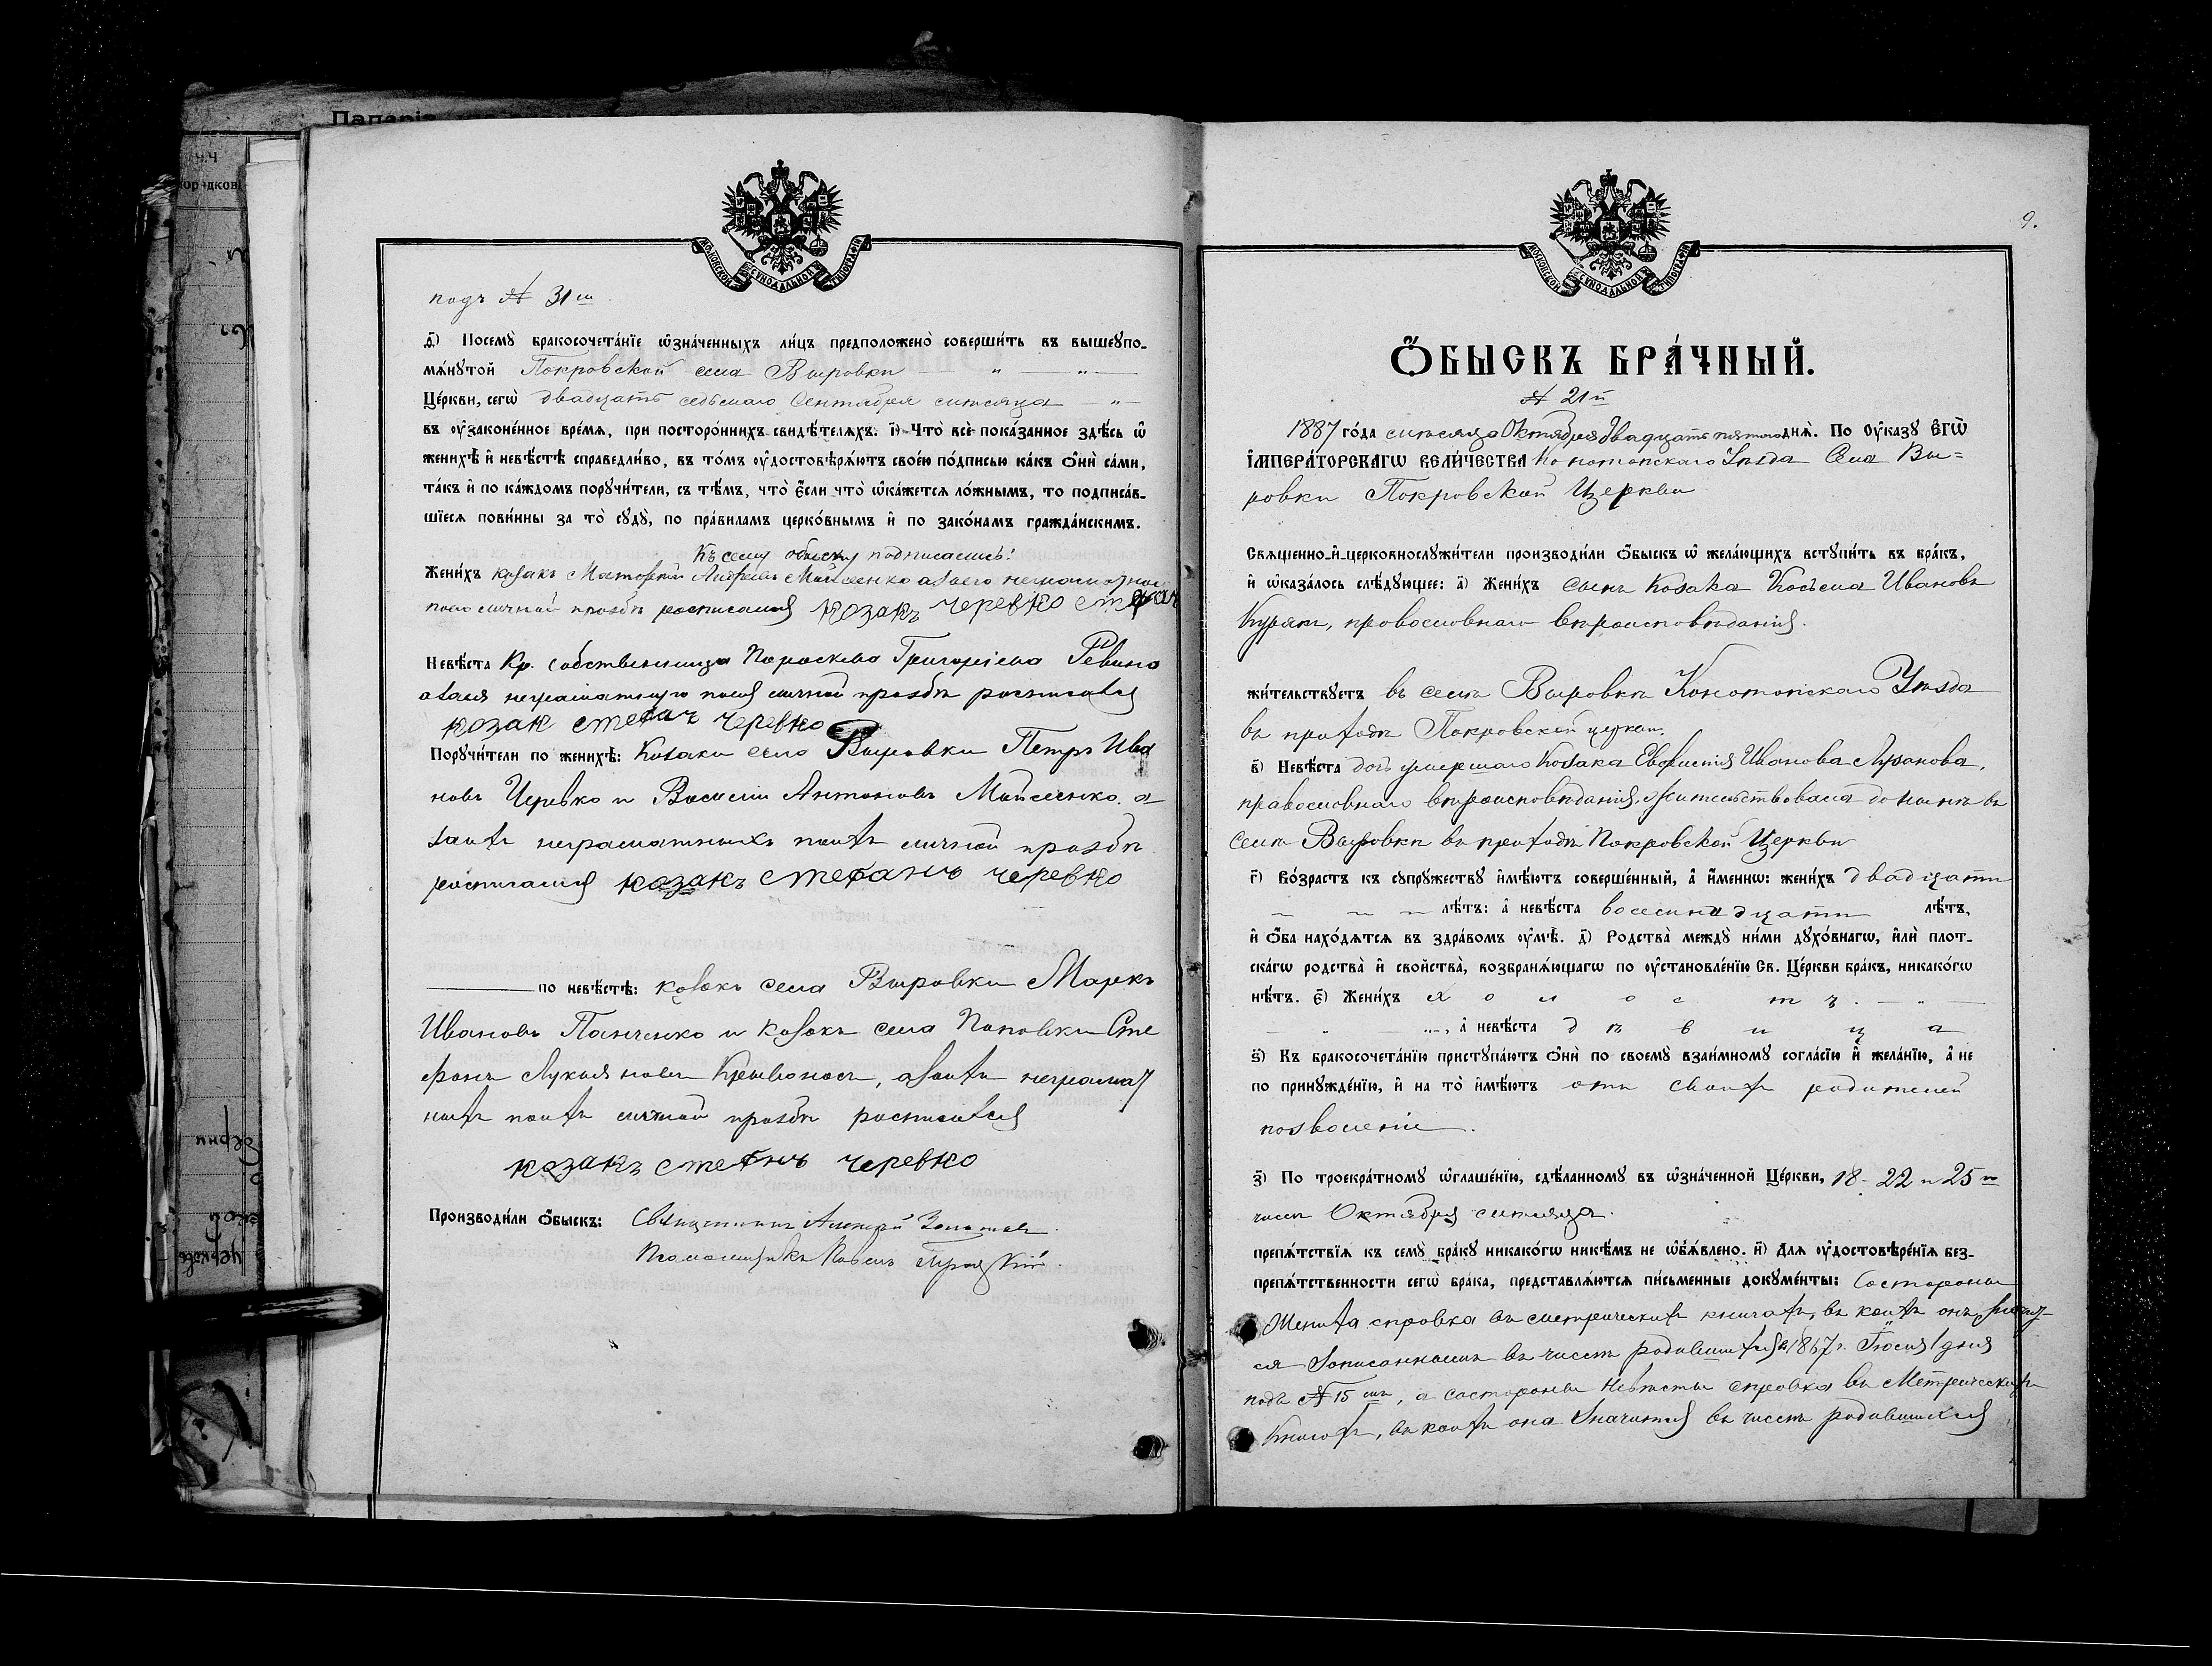 Папарія
МОСКОВСКОЙ СѴНОДАЛЬНОЙ ТИПОГРАФІИ
подъ № 31 м
д҃і) Посемꙋ̀ бракосочета́нїе ѡ҆зна́ченныхъ ли́цъ предположено̀ соверши́ть въ вышеꙋпо-
мѧ́нꙋтой Покровской села Вировки
Це́ркви, сегѡ̀ двадцать седьмаго Сентября мѣсяца
въ ᲂу҆законе́нное вре́мѧ, при посторо́ннихъ свидѣ́телѧхъ. і҃) Что̀ всѐ пока́занное здѣ́сь ѡ҆
женихѣ̀ и҆ невѣ́стѣ справедли́во, въ то́мъ ᲂу҆достовѣрѧ́ютъ свое́ю по́дписью ка́къ ѻ҆нѝ са́ми,
та́къ и҆ по ка́ждомъ порꙋчи́тели, съ тѣ́мъ, что̀ є҆́сли что̀ ѡ҆ка́жетсѧ ло́жнымъ, то подписа́в-
шїесѧ пови́нны за то̀ сꙋдꙋ̀, по пра́виламъ церко́внымъ и҆ по зако́намъ гражда́нскимъ.
Къ сему обыску подписались:
Жени́хъ козакъ Матовѣй Андреевъ Мойсеенко а за его неграмотнаго
по его личной прозбѣ росписался козакъ черевко стефан
Невѣ́ста Кр. собственница Пороскева Григорiева Ревина
а за ея неграматную по ея личной прозбѣ росписался
козак стефан черевко
Порꙋчи́тели по женихѣ̀: Козаки села Вировки Петръ Ива
новъ Черевко и Василiй Антоновъ Мойсеенко. а
за ихъ неграматныхъ по ихъ личной прозбѣ
росписался козакъ стефанъ черевко
по невѣ́стѣ: козакъ села Вировки Маркъ
Ивановъ Панченко и козакъ села Поповки Сте
фанъ Лукьяновъ Кривонось, а за ихъ неграмат
ныхъ по ихъ личной прозбѣ росписался
козакъ стефнъ черевко
Производи́ли ѻ҆́быскъ: Священникъ Алексѣй
Псаломщикъ Павелъ
9.
МОСКОВСКОЙ СѴНОДАЛЬНОЙ ТИПОГРАФІИ
Ѻ҆́БЫСКЪ БРА́ЧНЫЙ.
№ 21 й
1887 го́да мѣсяца Октября двадцать пятого днѧ̀. По ᲂу҆ка́зꙋ Є҆ГѠ̀
І҆МПЕРА́ТОРСКАГѠ ВЕЛИ́ЧЕСТВА Конотопскаго Уѣзда Села Ви=
ровки Покровской Церкви
Свѧще́нно-и҆-церковнослꙋжи́тели производи́ли ѻ҆́быскъ ѡ҆ жела́ющихъ встꙋпи́ть въ бра́къ,
и҆ ѡ҆каза́лось слѣ́дꙋющее: а҃) Жени́хъ сынъ Козака Косьма Ивановъ
Курякъ, провославнаго вѣроисповѣданiя.
жи́тельствꙋетъ въ селѣ Вировкѣ Конотопскаго Уѣзда
въ приходѣ Покровской церкви.
в҃) Невѣ́ста дочь умершаго Козака Евфимiя Иванова Лузанова,
православнаго вѣроисповѣданiя, жительствовала до нынѣ въ
селѣ Вировкѣ въ приходѣ Покровской Церкви
г҃) Во́зрастъ къ сꙋпрꙋ́жествꙋ и҆мѣ́ютъ соверше́нный, а҆̀ и҆́меннѡ: жени́хъ двадцати
лѣ́тъ: а҆̀ невѣ́ста восемнадцати лѣ́тъ,
и҆ ѻ҆́ба нахо́дѧтсѧ въ здра́вомъ ᲂу҆мѣ̀. д҃) Родства̀ междꙋ̀ ни́ми дꙋхо́внагѡ, и҆лѝ плот-
ска́гѡ родства̀ и҆ сво́йства̀, возбранѧ́ющагѡ по ᲂу҆становле́нїю Св. Це́ркви бра́къ, никако́гѡ
нѣ́тъ. є҃) Жени́хъ холостъ.
а҆̀ невѣ́ста дѣвица
ѕ҃) Къ бракосочета́нїю пристꙋпа́ютъ ѻ҆нѝ по своемꙋ̀ взаи́мномꙋ согла́сїю и҆ жела́нїю, а҆ не
по принꙋжде́нїю, и҆ на то̀ и҆мѣ́ютъ отъ своихъ родителей
позволенiе.
з҃) По троекра́тномꙋ ѡ҆глаше́нїю, сдѣ́ланномꙋ въ ѡ҆зна́ченной Це́ркви, 18- 22 и 25 го
числѣ Октября мѣсяца.
препѧ́тствїѧ къ семꙋ̀ бра́кꙋ никако́гѡ никѣ́мъ не ѡ҆б̾ѧ́влено. и҃) Длѧ ᲂу҆достовѣре́нїѧ без-
препѧ́тственности сегѡ̀ бра́ка, представлѧ́ютсѧ пи́сьменные докꙋме́нты: Состороны
Жениха спровка въ метрическихъ книгахъ, въ коихъ онъ
ся Зописаннымъ въ числѣ родившихся 1867 г. Iюля 1 дня
подъ № 15 мъ, а состороны Невѣсты спровка въ Метрическихъ
Книгахъ, въ коихъ она значится въ числѣ родившихся